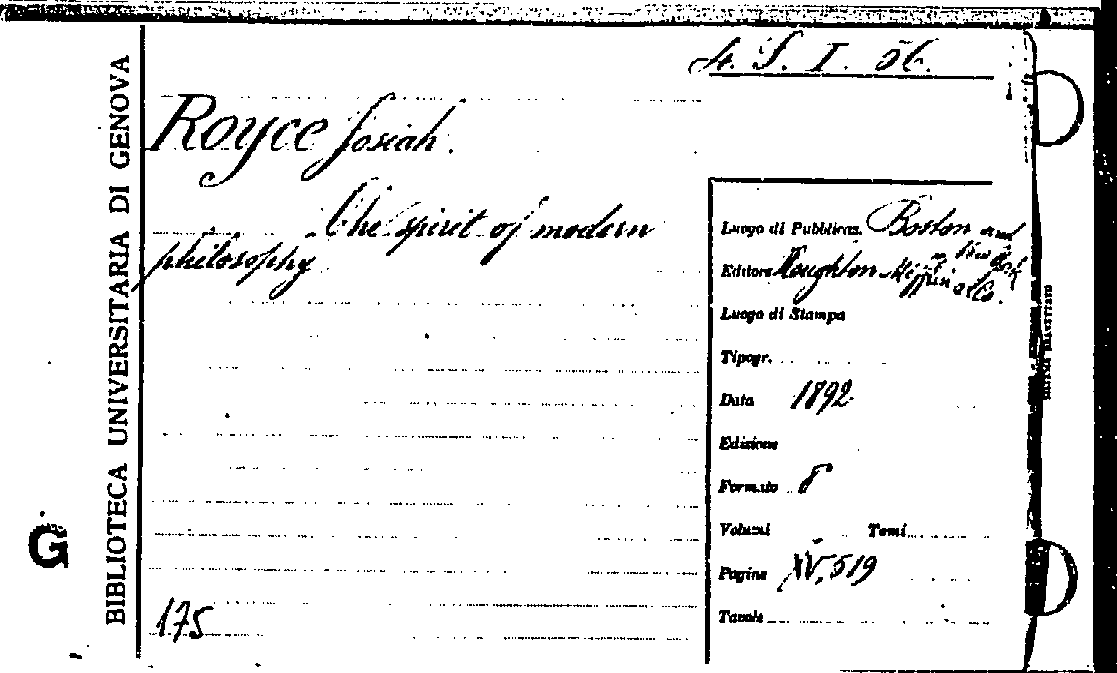 4. S. I. 56.
BIBLIOTECA UNIVERSITARIA DI GENOVA
Royce Josiah.
The spirit of modern
philosophy
Luogo di Pubblicaz. Boston and
New York
Editore Houghton Mifflin and Co.
Luogo di Stampa
Tipogr.
Data 1892
Edizione
Formato 8
Volumi Tomi
Pagine XV, 519
Tavole
G
175